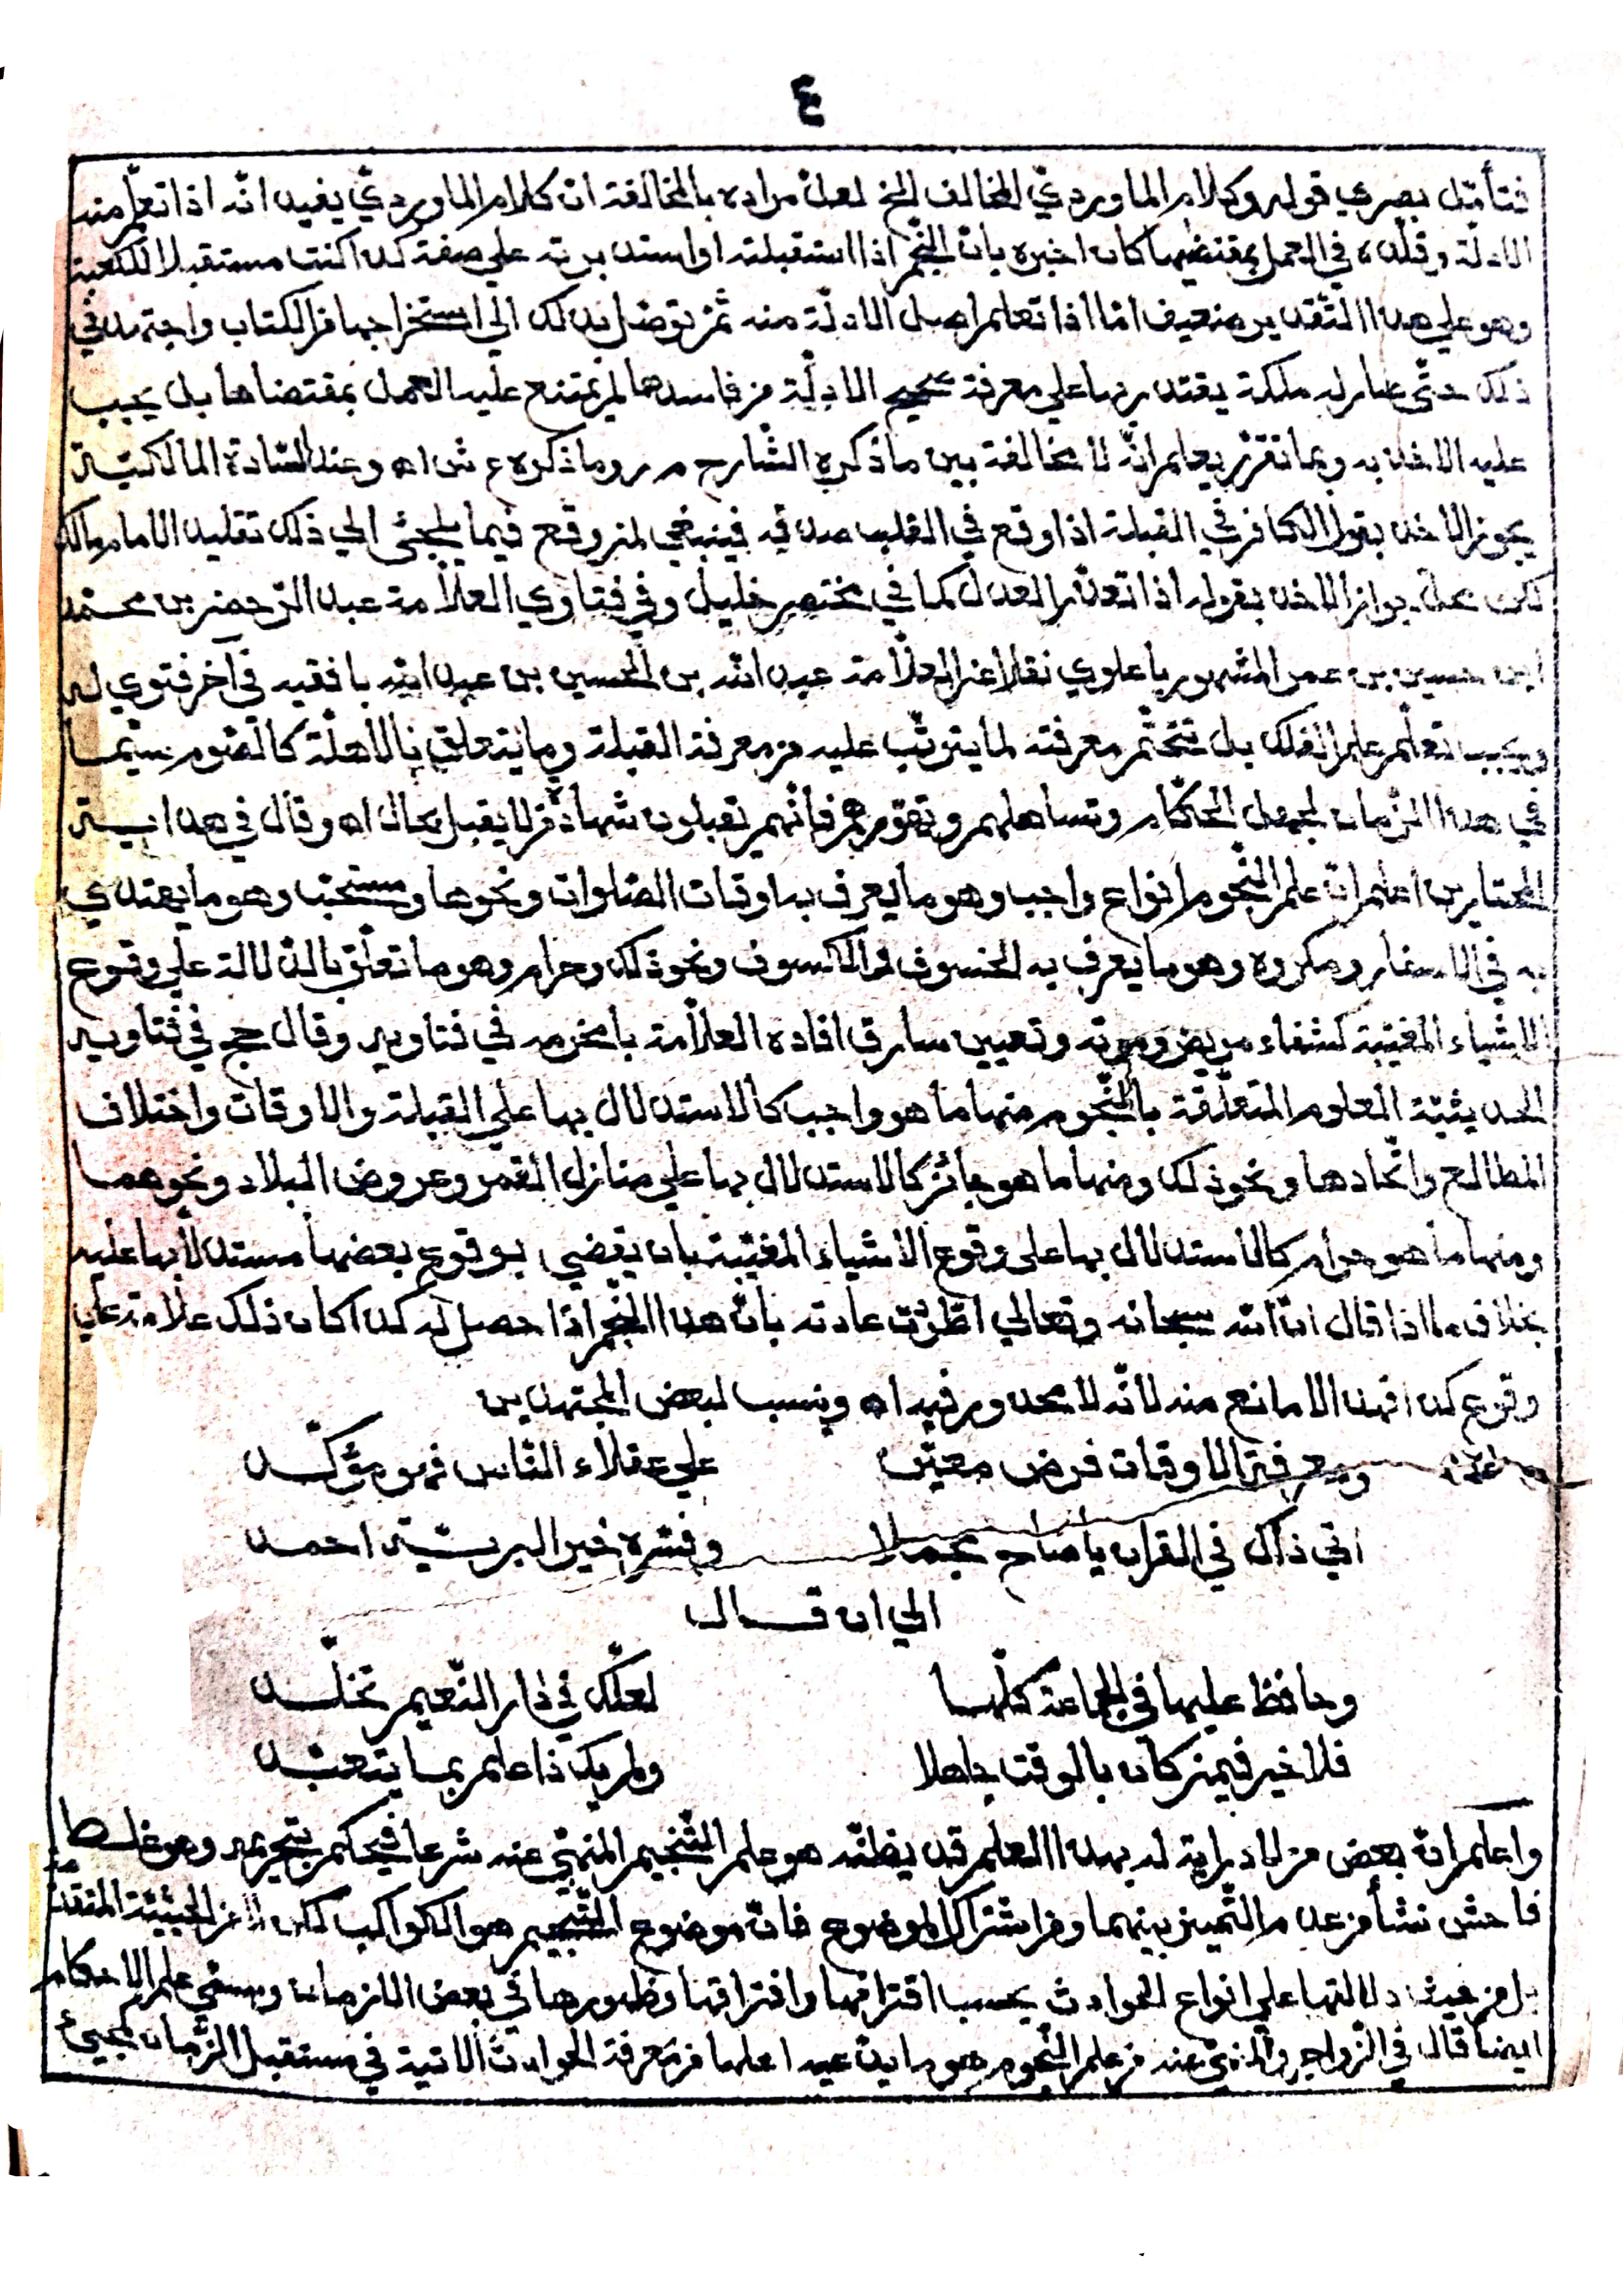 ٤
فتأمّل بصري قوله وكلام الماوردي المخالف الخ لعلّ مراده بالمخالفة ان كلام الماوردي يفيد انّه اذا تعلّم منه
الادلّة وقلّده في العمل بمقتضيها كان اخبره بانّ النّجم اذا استقبلته او استدبرته علي صفة كذا كنت مستقبلا للكعبة
وهو علي هذا التّقدير ضعيف امّا اذا تعلم اصل الادلّة منه ثمّ توصّل بذلك الي استخراجها من الكتاب واجتهد في
ذلك حتّى صار له ملكة يقتدر بها علي معرفة صحيح الادلّة من فاسدها لم يمتنع عليه العمل بمقتضاها بل يجب
عليه الاخذ به وبما تقرّر يعلم انّه لا مخالفة بين ما ذكره الشّارح م ر وما ذكره ع ش اه وعند السّادة المالكيّة
يجوز الاخذ بقول الكافر في القبلة اذا وقع في القلب صدقه فينبغي لمن وقع فيما يلجئ الي ذلك تقليد الامام مالك
لكن محلّ جواز الاخذ بقوله اذا تعذّر العدل كما في مختصر خليل وفي فتاوي العلّامة عبد الرّحمن بن محمّد
ابن حسين بن عمر المشهور باعلوي نقلا عن العلّامة عبد الله بن الحسين بن عبد الله بافقيه في آخر فتوي له
ويجب تعلّم علم الفلك بل تتحتّم معرفته لما يترتّب عليه من معرفة القبلة وما يتعلق بالاهلّة كالصّوم سيّما
في هذا الزّمان لجهل الحكّام وتساهلهم وتهوّرهم فانّهم يقبلون شهادة من لا يقبل بحال اه وقال في هداية
المحتارين اعلم انّ علم النّجوم انواع واجب وهو ما يعرف به اوقات الصّلوات ونحوها ومستحبّ وهو ما يهتدي
به في الاسفار ومكروه وهو ما يعرف به الخسوف والكسوف ونحو ذلك وحرام وهو ما تعلّق بالدّلالة علي وقوع
الاشياء المغيّبة كشفاء مريض وموته وتعيين سارق افاده العلّامة بامخرمه في فتاويه وقال حج في فتاويه
الحديثيّة العلوم المتعلّقة بالنّجوم منها ما هو واجب كالاستدلال بها علي القبلة والاوقات واختلاف
المطالع واتّحادها ونحو ذلك ومنها ما هو جائز كالاستدلال بها علي منازل القمر وعروض البلاد ونحوهما
ومنها ما هو حرام كالاستدلال بها على وقوع الاشياء المغيّبة بان يقضي بوقوع بعضها مستدلّا بها عليه
بخلاف ما اذا قال انّ الله سبحانه وتعالي اطّردت عادته بانّ هذا النّجم اذا حصل له كذا كان ذلك علامة علي
وقوع كذا فهذا لا مانع منه لانّه لا محذور فيه اه وينسب لبعض المجتهدين
ومعرفة الاوقات فرض معيّن علي عقلاء النّاس فهو مؤكّد
اتي ذاك في القران يا صاح مجملا وفسّره خير البريّة احمد
الي ان قال
وحافظ عليها في الجماعة كلّها لعلّك في دار النّعيم تخلّد
فلا خير فيمن كان بالوقت جاهلا ولم يك ذا علم بما يتعبّد
واعلم انّ بعض من لا دراية له بهذا العلم قد يظنّه هو علم التّنجيم المنهيّ عنه شرعا فيحكم بتحريمه وهو غلط
فاحش نشأ من عدم التّمييز بينهما ومن اشتراك الموضوع فانّ موضوع التّنجيم هو الكواكب لكن لا من الحيثيّة المتقدّمة
بل من حيث دلالتها علي انواع الحوادث بحسب اقترانها وافتراقها وظهورها في بعض الازمان ويسمّي علم الاحكام
ايضا قال في الزّواجر والمنهيّ عنه من علم النّجوم هو ما يدّعيه اهلها من معرفة الحوادث الاتية في مستقبل الزّمان كمجيئ